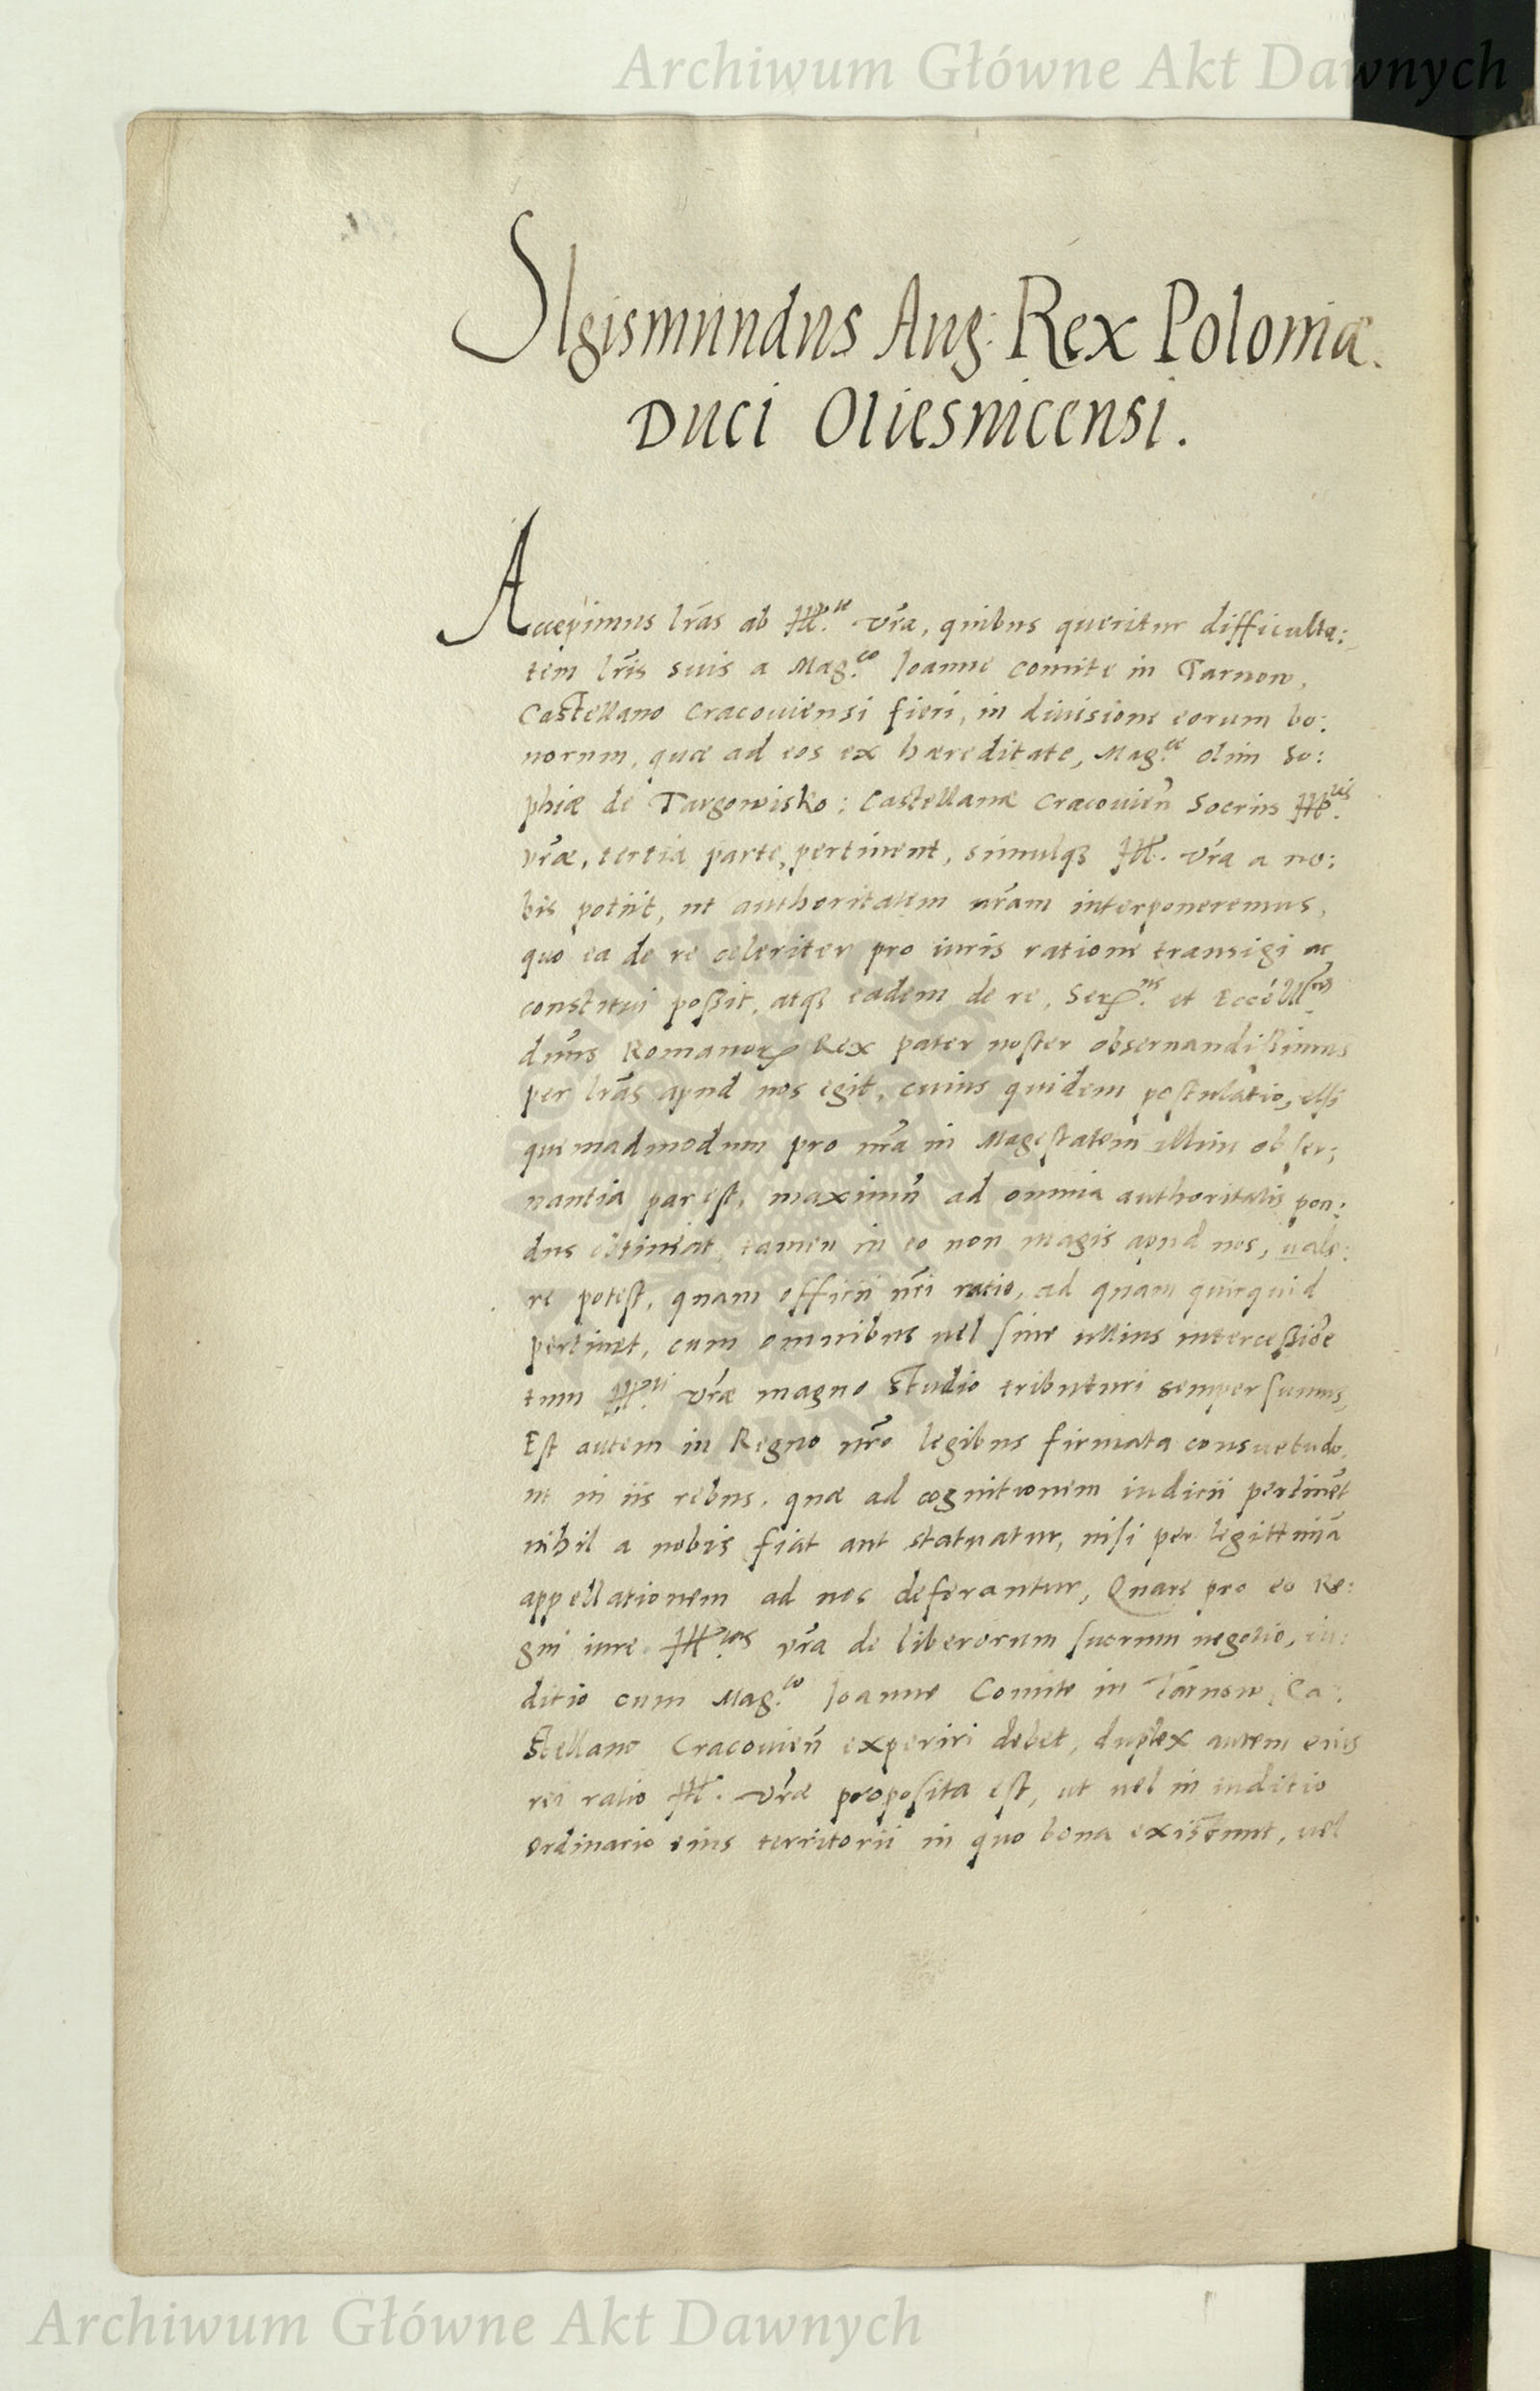 Archiwum Główne Akt Dawnych
Sigismundus Aug: Rex Poloniæ.
Duci Oliesnicensi.
Accepimus lr̃as ab Ill.te vr̃a, quibus queritur difficulta:
tem lr̃is suis a Mag.co Joanne Comite in Tarnow,
Castellano Cracouiensi fieri, in diuisione eorum bo:
norum, quæ ad eos ex hæreditate, Mag.cæ olim So:
phiæ de Targowisko: Castellanæ Cracouien̄ Socrus Ill.tis
vr̃æ, tertia parte, pertinent, simulq3 Ill. vr̃a a no:
bis petiit, ut authoritatem nr̃am interponeremus,
quo ea de re celeriter pro iuris ratione transigi ac
constitui poßit, atq3 eadem de re, Ser.mus et Eccell.mus
dn̄us Romanor Rex pater noster obseruandißimus
per lr̃as apud nos egit, cuius quidem postulatio, etsi
quemadmodum pro nr̃a in Magestatem illius obser:
uantia par est, maximū ad omnia authoritatis pon:
dus obtineat, tamen in eo non magis apud nos, uale:
re potest, quam officii nr̃i ratio, ad quam quicquid
pertinet, cum omnibus uel sine ullius interceßiōe
tum Ill.ti vr̃æ magno studio tributuri semper sumus,
Est autem in Regno nr̃o legibus firmata consuetudo,
ut in iis rebus, quæ ad cognitionem iudicii pertinēt
nihil a nobis fiat aut statuatur, nisi per legittimā
appellationem ad nos deferantur, Quare pro eo Re:
gni iure Ill.tas vr̃a de liberorum suorum negotio, iu:
ditio cum Mag.co Joanne Comite in Tarnow, Ca:
stellano Cracouien̄ experiri debet, duplex autem eius
rei ratio Ill. vr̃æ proposita est, ut uel in iuditio
ordinario eius territorii in quo bona existunt, uel
Archiwum Główne Akt Dawnych